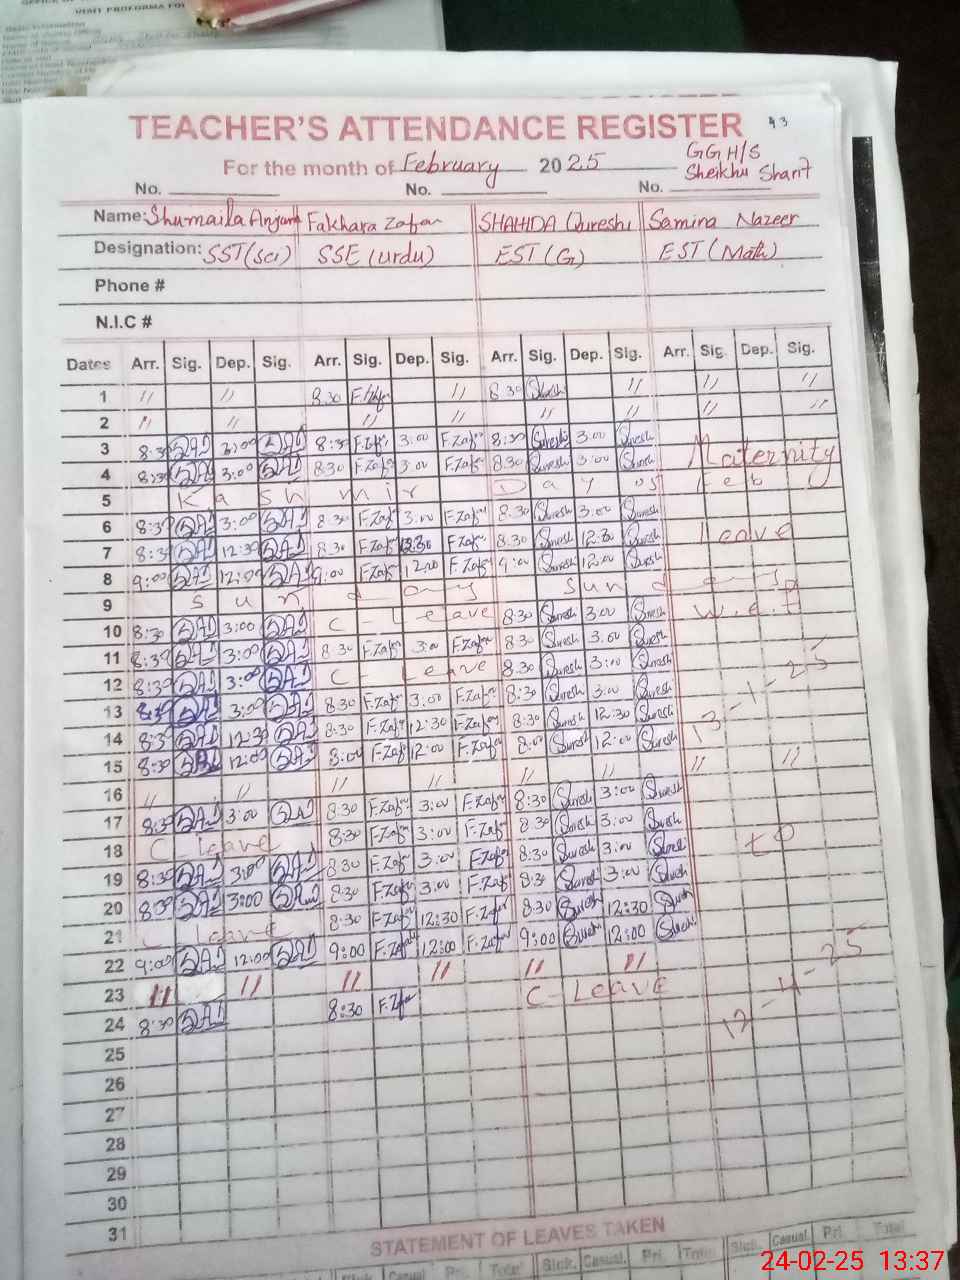 VISIT PROFORMA FO
TEACHER'S ATTENDANCE REGISTER
For the month of February 2025
GGH/S
Sheikhu Sharif
No. No. No.
Name: Shumaila Anjum Fakhara Zafar SHAHIDA Qureshi Samina Nazeer
Designation: SST(Sci) SSE (Urdu) EST (G) EST (Math)
Phone #
N.I.C #
Dates Arr. Sig. Dep. Sig. Arr. Sig. Dep. Sig. Arr. Sig. Dep. Sig. Arr. Sig. Dep. Sig.
1 " " 8:30 " 8:30 " " "
2 " " " " " " " "
3 8:30 3:00 8:30 F.Zafar 3:00 F.Zafar 8:30 Quresh 3:00 Quresh Maternity
4 8:30 3:00 8:30 F.Zafar 3:00 F.Zafar 8:30 Quresh 3:00 Quresh
5 Kashmir Day 05 Feb
6 8:30 3:00 8:30 F.Zafar 3:00 F.Zafar 8:30 Quresh 3:00 Quresh
7 8:30 12:30 8:30 F.Zafar 12:30 F.Zafar 8:30 Quresh 12:30 Quresh Leave
8 9:00 12:00 9:00 F.Zafar 12:00 F.Zafar 9:00 Quresh 12:00 Quresh
9 Sunday Sunday
10 8:30 3:00 C Leave 8:30 Quresh 3:00 Quresh W.e.f
11 8:30 3:00 8:30 F.Zafar 3:00 F.Zafar 8:30 Quresh 3:00 Quresh
12 8:30 3:00 C Leave 8:30 Quresh 3:00 Quresh
13 8:30 3:00 8:30 F.Zafar 3:00 F.Zafar 8:30 Quresh 3:00 Quresh 13-1-25
14 8:30 12:30 8:30 F.Zafar 12:30 F.Zafar 8:30 Quresh 12:30 Quresh
15 8:30 12:00 F.Zafar 12:00 F.Zafar 8:00 Quresh 12:00 Quresh
16 " " " " " " " "
17 8:30 3:00 8:30 F.Zafar 3:00 F.Zafar 8:30 Quresh 3:00 Quresh
18 C leave 8:30 F.Zafar 3:00 F.Zafar 8:30 Quresh 3:00 Quresh
19 8:30 3:00 8:30 F.Zafar 3:00 F.Zafar 8:30 Quresh 3:00 Quresh to
20 8:30 3:00 8:30 F.Zafar 3:00 F.Zafar 8:30 Quresh 3:00 Quresh
21 C leave 8:30 F.Zafar 12:30 F.Zafar 8:30 Quresh 12:30 Quresh
22 9:00 12:00 9:00 F.Zafar 12:00 F.Zafar 9:00 Quresh 12:00 Quresh
23 " " " " " "
24 8:30 8:30 F.Zafar C-Leave 12-4-25
25
26
27
28
29
30
31
STATEMENT OF LEAVES TAKEN
Sick. Casual. Pri. Total Sick. Casual. Pri. Total Sick. Casual. Pri. Total
24-02-25 13:37